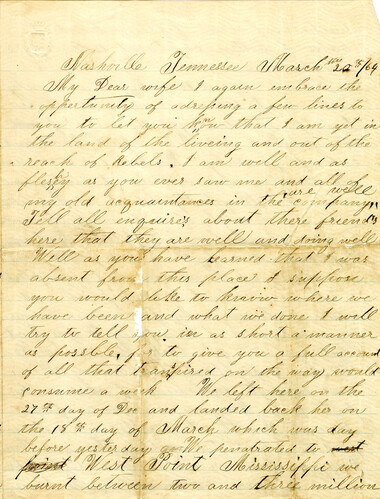 Nashville Tennessee March the 20th /64
My Dear wife I again embrace the
opportunity of adressing a few lines to
you to let you know that I am yet in
the land of the liveing and out of the
reach of Rebels. I am well and as
fleshy as you ever saw me and all of
my old acquaintances in the company are well
Tell all inquires about there friends
here that they are well and doing well
Well as you have learned that I was
absent from this place I suppose
you would like to know where we
have been and what we done I will
try to tell you in as short a manner
as possble, for to give you a full account
of all that transpired on the way would
consume a week We left here on the
27th day of Dec and landed back her on
the 18th day of March which was day
before yesterday We penetrated to west
point West Point Mississippi we
burnt between two and three million